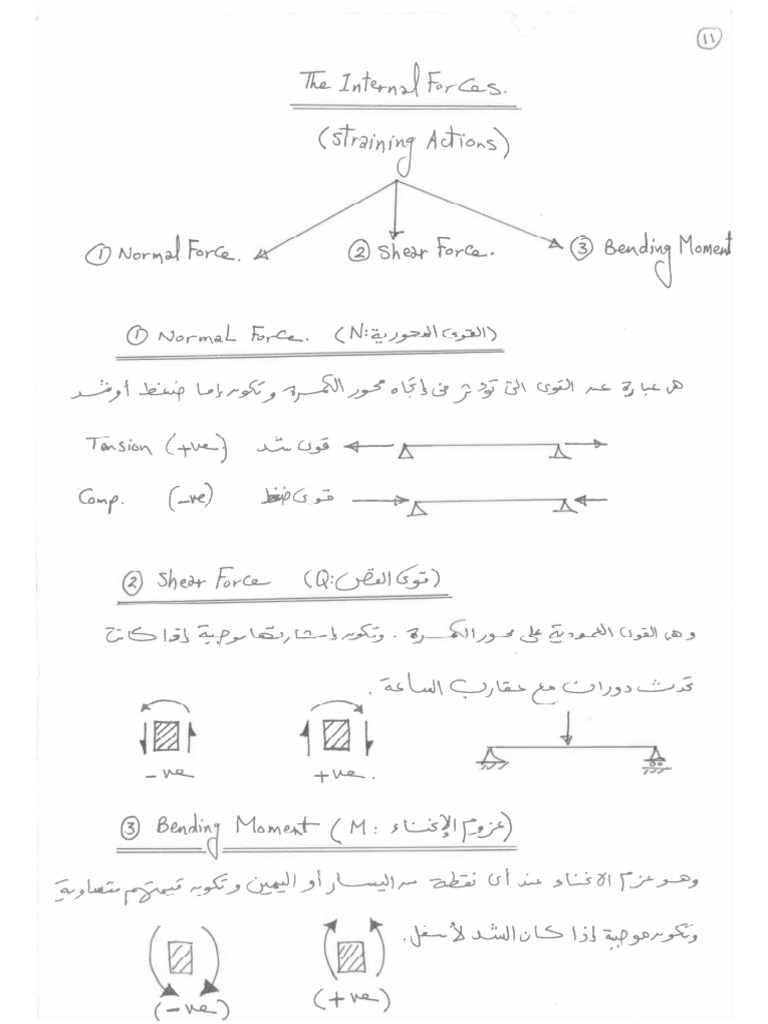 ١١
The Internal Forces.
(Straining Actions)
① Normal Force. ② Shear Force. ③ Bending Moment
① Normal Force. (N: القوى المحورية)
هى عبارة عن القوى التى تؤثر فى إتجاه محور الكمرة وتكون إما ضغط أو شد
Tension (+ve) قوى شد
Comp. (-ve) قوى ضغط
② Shear Force (Q: قوى القص)
وهى القوى العمودية على محور الكمرة. وتكون إشارتها موجبة إذا كانت
تحدث دوران مع عقارب الساعة.
-ve +ve.
③ Bending Moment (M: عزوم الإنحناء)
وهو عزم الانحناء عند أى نقطة من اليسار أو اليمين وتكون قيمتهم متساوية
وتكون موجبة إذا كان الشد لأسفل.
(-ve) (+ve)